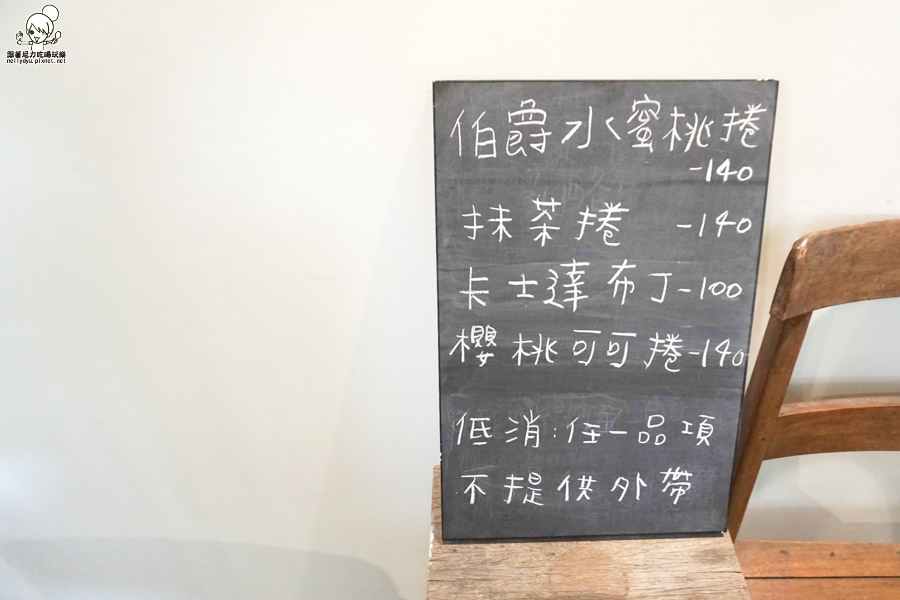 跟著尼力吃喝玩樂
nellydyu.pixnet.net
伯爵水蜜桃捲
-140
抹茶捲 -140
卡士達布丁-100
櫻桃可可捲-140
低消:任一品項
不提供外帶